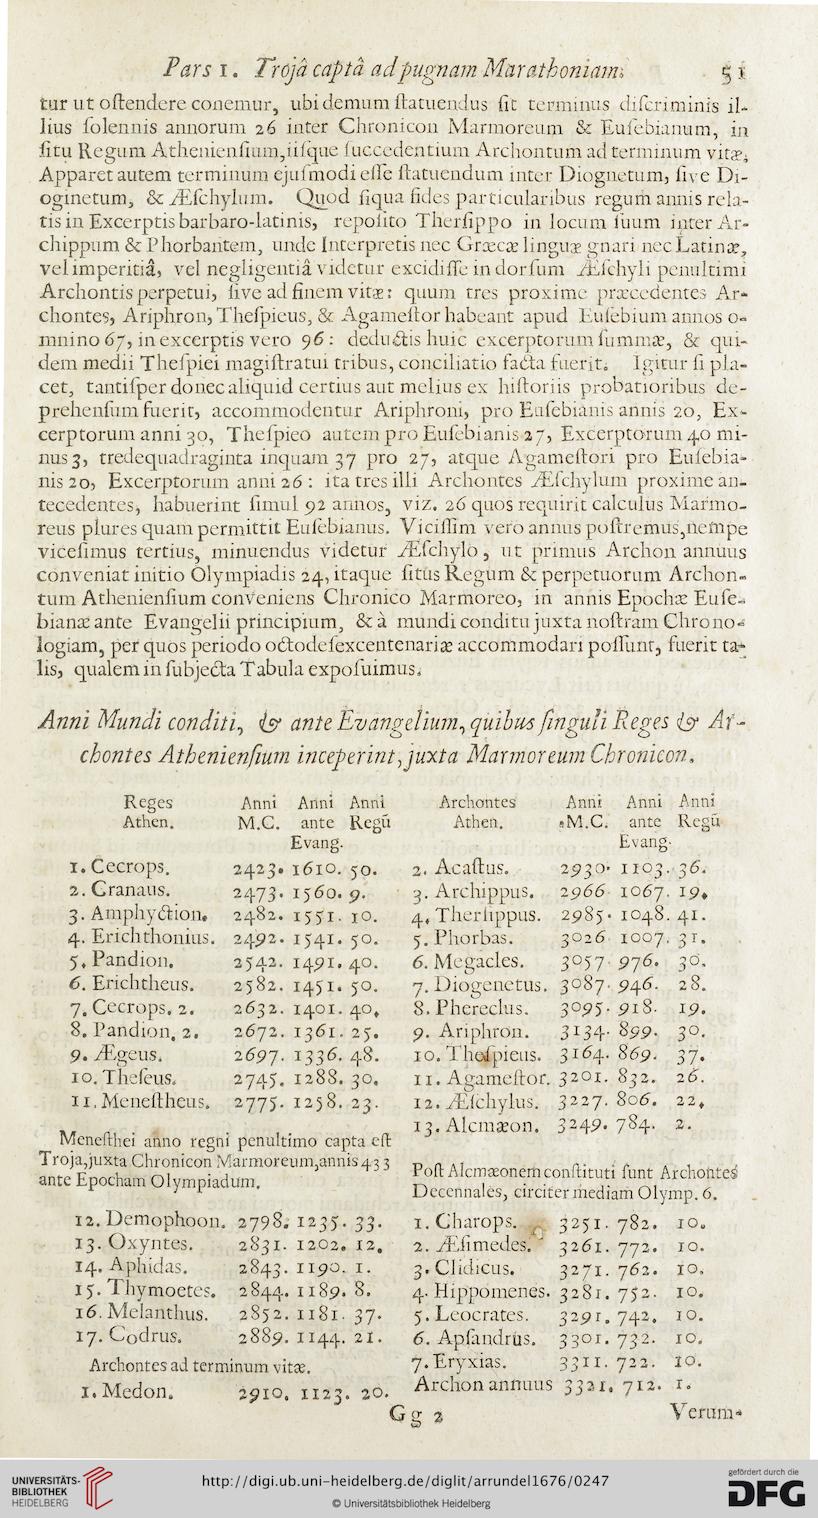 Pars 1. Trojâ captâ ad pugnam Marathoniam. 51
tur ut oſtendere conemur, ubi demum ſtatuendus ſit terminus diſcriminis il-
lius ſolennis annorum 26 inter Chronicon Marmoreum & Euſebianum, in
ſitu Regum Athenienſium, iiſque ſuccedentium Archontum ad terminum vitæ,
Apparet autem terminum ejuſmodi eſſe ſtatuendum inter Diognetum, ſive Di-
oginetum, & Æſchylum. Quod ſiqua fides particularibus regum annis rela-
tis in Excerptis barbaro-latinis, repoſito Therſippo in locum ſuum inter Ar-
chippum & Phorbantem, unde Interpretis nec Græcæ linguæ gnari nec Latinæ,
vel imperitiâ, vel negligentiâ videtur excidiſſe in dorſum Æſchyli penultimi
Archontis perpetui, ſive ad finem vitæ: quum tres proxime præcedentes Ar-
chontes, Ariphron, Theſpieus, & Agameſtor habeant apud Euſebium annos o-
mnino 67, in excerptis vero 96: deductis huic excerptorum ſummæ, & qui-
dem medii Theſpiei magiſtratui tribus, conciliatio facta fuerit. Igitur ſi pla-
cet, tantiſper donec aliquid certius aut melius ex hiſtoriis probatioribus de-
prehenſum fuerit, accommodentur Ariphroni, pro Euſebianis annis 20, Ex-
cerptorum anni 30, Theſpieo autem pro Euſebianis 27, Excerptorum 40 mi-
nus 3, tredequadraginta inquam 37 pro 27, atque Agameſtori pro Euſebia-
nis 20, Excerptorum anni 26: ita tres illi Archontes Æſchylum proxime an-
tecedentes, habuerint ſimul 92 annos, viz. 26 quos requirit calculus Marmo-
reus plures quam permittit Euſebianus. Viciſſim vero annus poſtremus, nempe
viceſimus tertius, minuendus videtur Æſchylo, ut primus Archon annuus
conveniat initio Olympiadis 24, itaque ſitus Regum & perpetuorum Archon-
tum Athenienſium conveniens Chronico Marmoreo, in annis Epochæ Euſe-
bianæ ante Evangelii principium, & à mundi conditu juxta noſtram Chrono-
logiam, per quos periodo octodeſexcentenariæ accommodari poſſunt, fuerit ta-
lis, qualem in ſubjecta Tabula expoſuimus.
Anni Mundi conditi, & ante Evangelium, quibus ſinguli Reges & Ar-
chontes Athenienſium inceperint, juxta Marmoreum Chronicon.
Reges Anni Anni Anni
Athen. M.C. ante Regū
Evang.
1. Cecrops. 2423. 1610. 50.
2. Cranaus. 2473. 1560. 9.
3. Amphyction. 2482. 1551. 10.
4. Erichthonius. 2492. 1541. 50.
5. Pandion. 2542. 1491. 40.
6. Erichtheus. 2582. 1451. 50.
7. Cecrops. 2. 2632. 1401. 40.
8. Pandion. 2. 2672. 1361. 25.
9. Ægeus. 2697. 1336. 48.
10. Theſeus. 2745. 1288. 30.
11. Meneſtheus. 2775. 1258. 23.
Meneſthei anno regni penultimo capta eſt
Troja, juxta Chronicon Marmoreum, annis 433
ante Epocham Olympiadum.
12. Demophoon. 2798. 1235. 33.
13. Oxyntes. 2831. 1202. 12.
14. Aphidas. 2843. 1190. 1.
15. Thymoetes. 2844. 1189. 8.
16. Melanthus. 2852. 1181. 37.
17. Codrus. 2889. 1144. 21.
Archontes ad terminum vitæ.
1. Medon. 2910. 1123. 20.
Archontes Anni Anni Anni
Athen. M.C. ante Regū
Evang.
2. Acaſtus. 2930. 1103. 36.
3. Archippus. 2966 1067. 19.
4. Therſippus. 2985. 1048. 41.
5. Phorbas. 3026 1007. 31.
6. Megacles. 3057. 976. 30.
7. Diogenetus. 3087. 946. 28.
8. Phereclus. 3095. 918. 19.
9. Ariphron. 3134. 899. 30.
10. Theſpieus. 3164. 869. 37.
11. Agameſtor. 3201. 832. 26.
12. Æſchylus. 3227. 806. 22.
13. Alcmæon. 3249. 784. 2.
Poſt Alcmæonem conſtituti ſunt Archontes
Decennales, circiter mediam Olymp. 6.
1. Charops. 3251. 782. 10.
2. Æſimedes. 3261. 772. 10.
3. Clidicus. 3271. 762. 10.
4. Hippomenes. 3281. 752. 10.
5. Leocrates. 3291. 742. 10.
6. Apſandrus. 3301. 732. 10.
7. Eryxias. 3311. 722. 10.
Archon annuus 3321. 712. 1.
Gg 2 Verum-
UNIVERSITÄTS-
BIBLIOTHEK
HEIDELBERG
http://digi.ub.uni-heidelberg.de/diglit/arrundel1676/0247
© Universitätsbibliothek Heidelberg
gefördert durch die
DFG